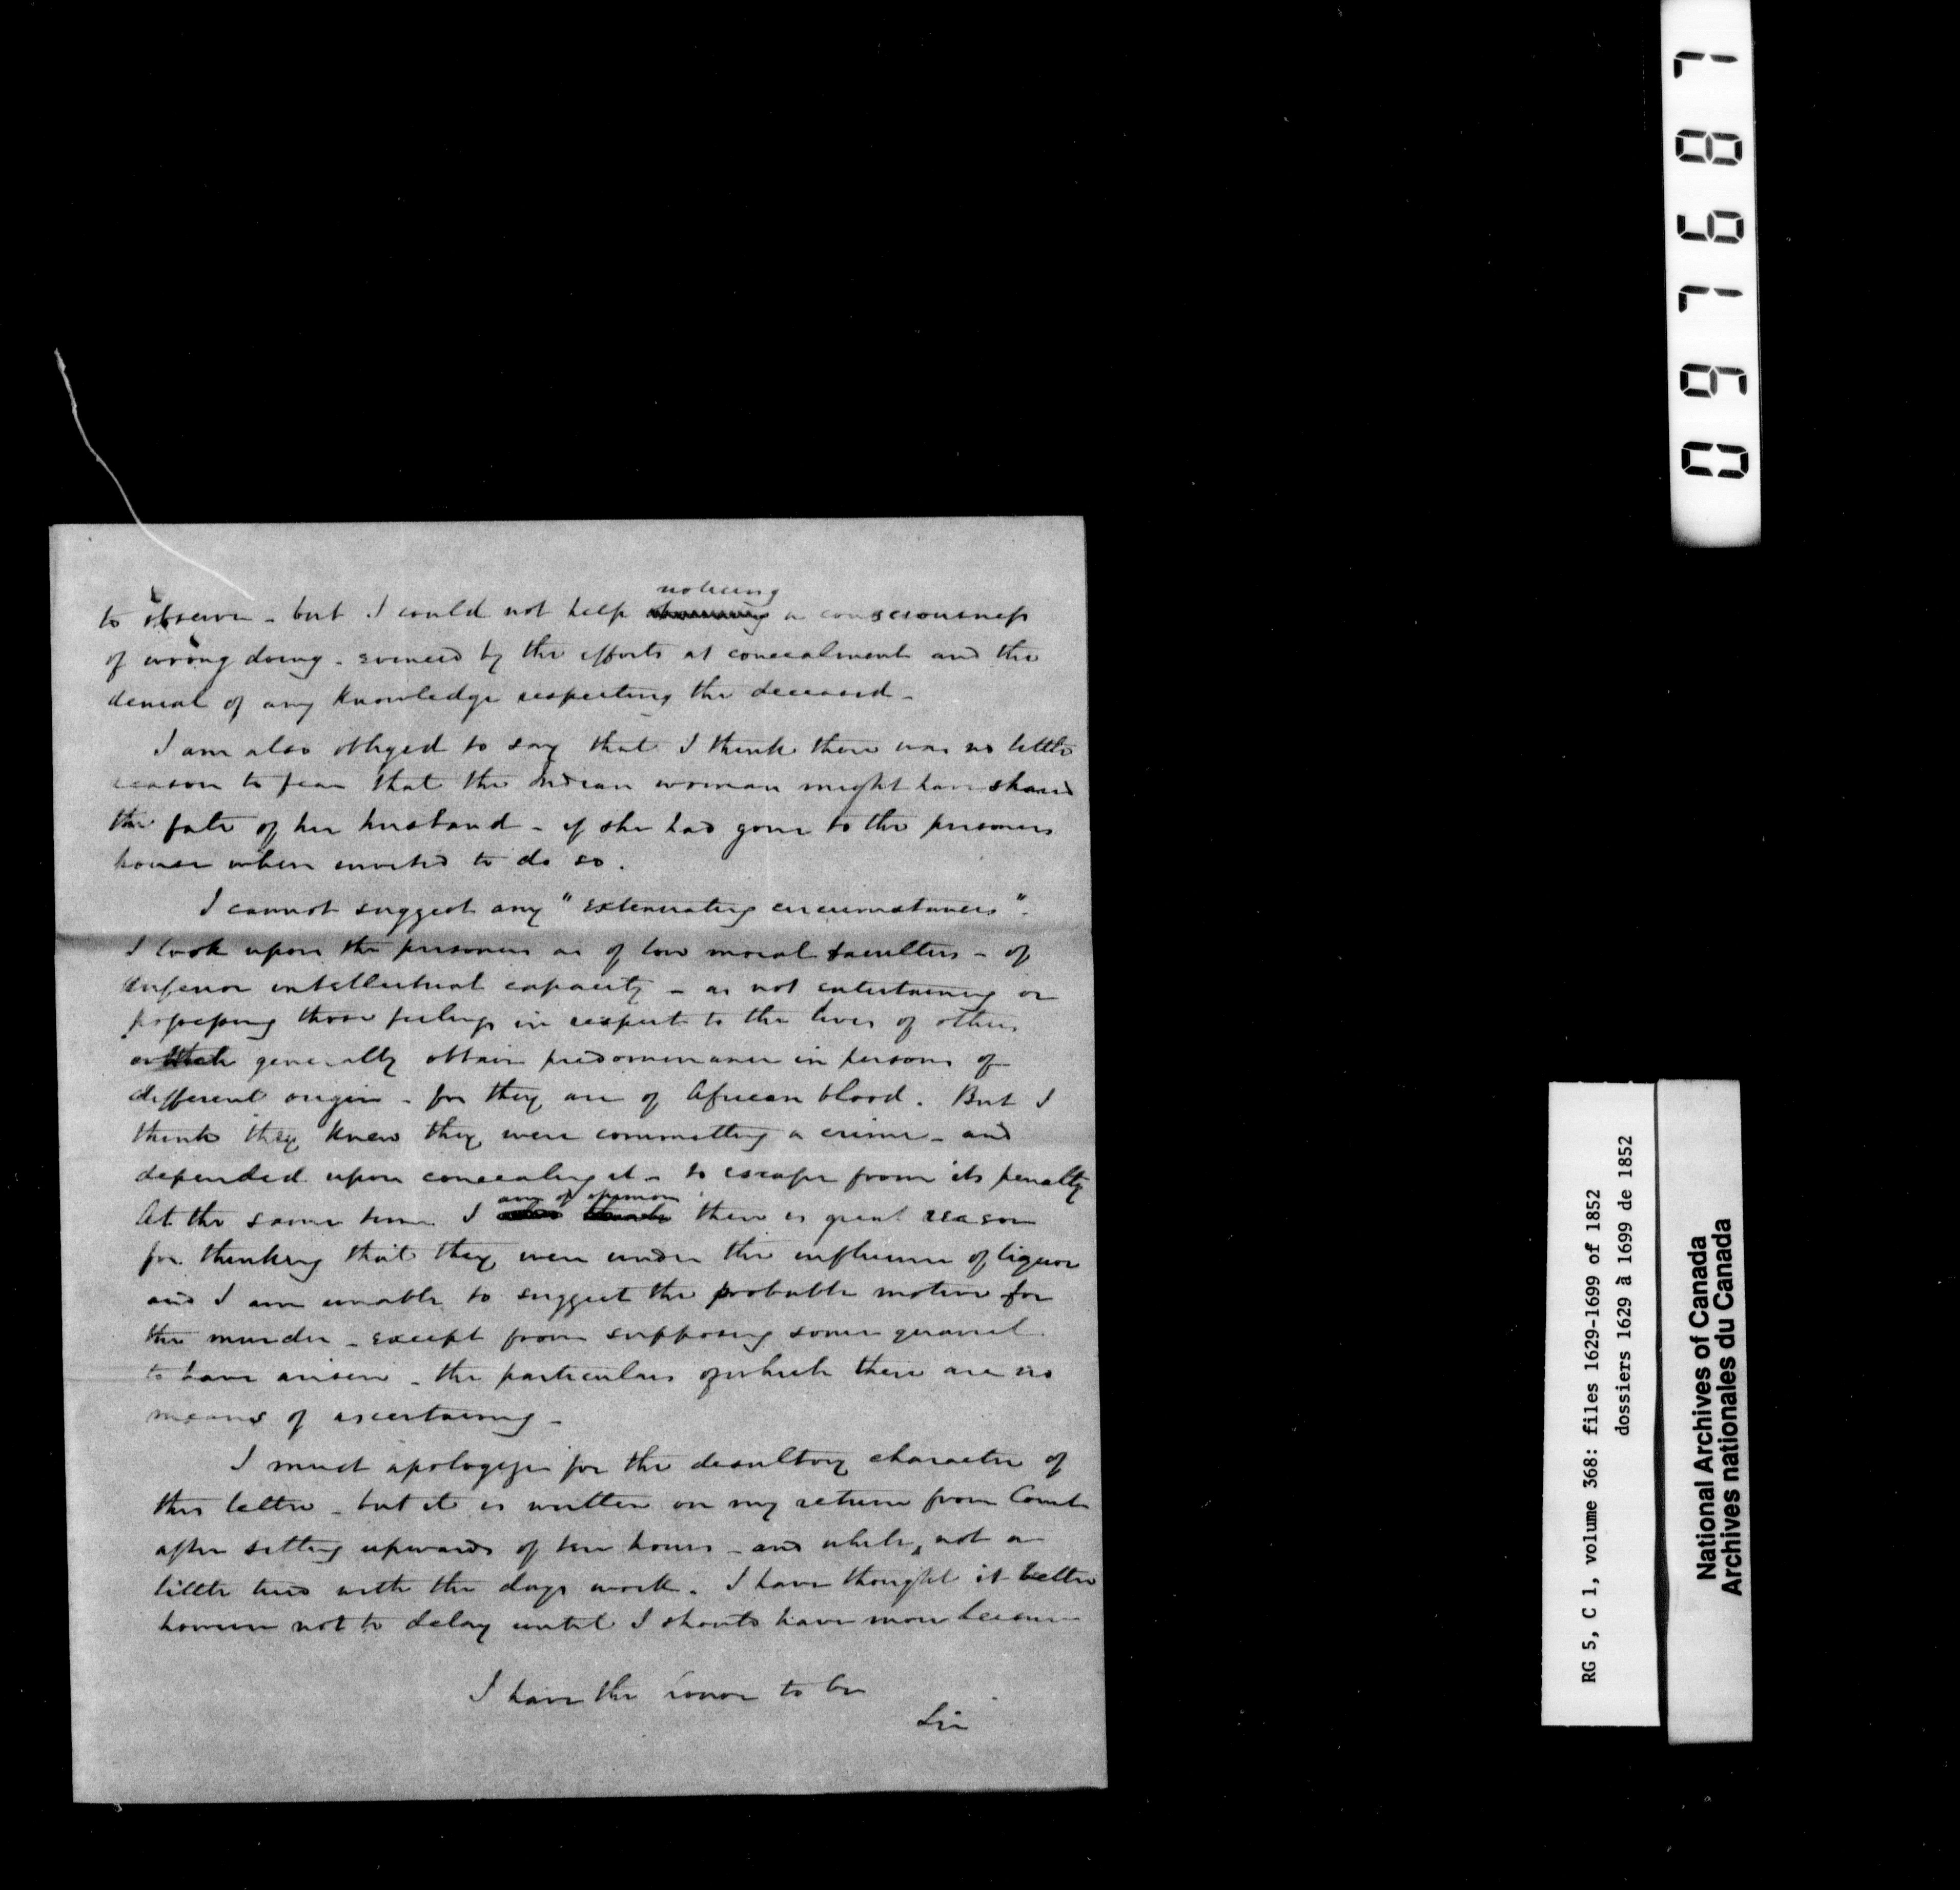 noticing
to observe - but I could not help a consciousness
of wrong doing - evinced by the efforts at concealment and the
denial of any knowledge respecting the deceased -
I am also obliged to say that I think there was no little
reason to fear that the Indian woman might have shared
the fate of her husband - if she had gone to the prisoners
house when invited to do so.
I cannot suggest any "extenuating circumstances".
I look upon the prisoners as of low moral faculties - of
inferior intellectual capacity - as not entertaining or
possessing those feelings in respect to the lives of others
which generally obtain predominance in persons of
different origin - for they are of African blood. But I
think they knew they were committing a crime - and
depended upon concealing it - to escape from its penalty
am of opinion
At the same time I there is great reason
for thinking that they were under the influence of liquor
and I am unable to suggest the probable motive for
the murder - except from supposing some quarrel
to have arisen - the particulars of which there are no
means of ascertaining -
I must apologize for the desultory character of
this letter - but it is written on my return from Court
after sitting upwards of ten hours - and while, not a
little tired with the days work. I have thought it better
however not to delay until I should have more leisure
I have the honor to be
Sir
097687
RG 5, C 1, volume 368: files 1629-1699 of 1852
dossiers 1629 à 1699 de 1852
National Archives of Canada
Archives nationales du Canada